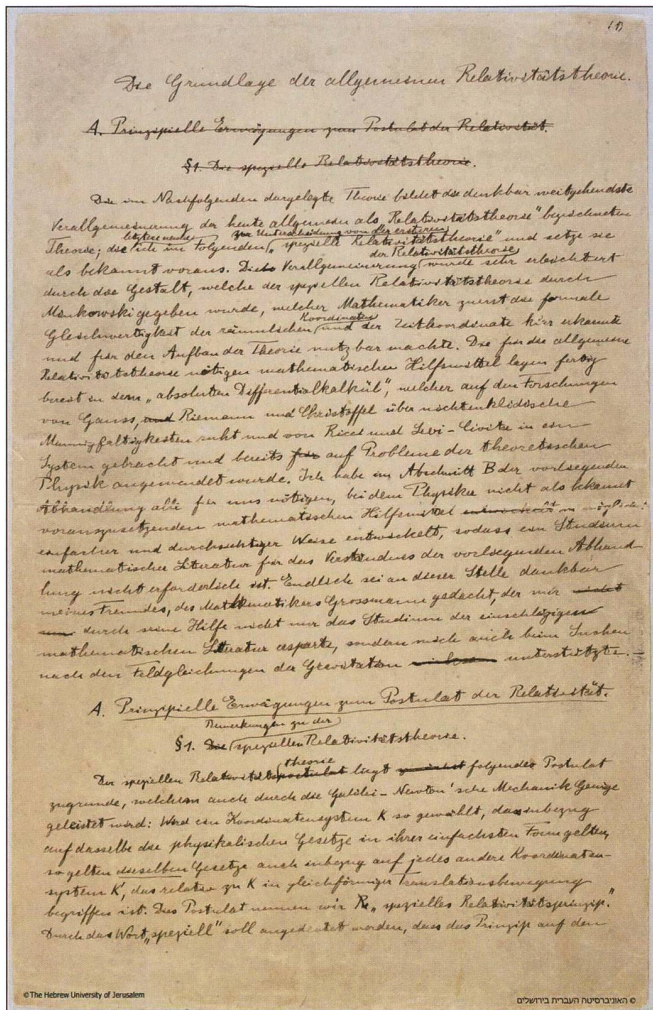 Die Grundlage der allgemeinen Relativitätstheorie.
A. Prinzipielle Erwägungen zum Postulat der Relativität.
§1. Die spezielle Relativitätstheorie.
Die im Nachfolgenden dargelegte Theorie bildet die denkbar weitgehendste
Verallgemeinerung der heute allgemein als „Relativitätstheorie" bezeichneten
letztere nenne zur Unterscheidung von der ersteren
Theorie; die ich im Folgenden „spezielle Relativitätstheorie" und setze sie
der Relativitätstheorie
als bekannt voraus. Diese Verallgemeinerung wurde sehr erleichtert
durch die Gestalt, welche der speziellen Relativitätstheorie durch
Minkowski gegeben wurde, welcher Mathematiker zuerst die formale
Koordinaten
Gleichwertigkeit der räumlichen und der Zeitkoordinate klar erkannte
und für den Aufbau der Theorie nutzbar machte. Die für die allgemeine
Relativitätstheorie nötigen mathematischen Hilfsmittel lagen fertig
bereit in dem „absoluten Differentialkalkül", welcher auf den Forschungen
von Gauss, und Riemann und Christoffel über nichteuklidische
Mannigfaltigkeiten ruht und von Ricci und Levi-Civita in ein
System gebracht und bereits auf Probleme der theoretischen
Physik angewendet wurde. Ich habe im Abschnitt B der vorliegenden
Abhandlung alle für uns nötigen, bei dem Physiker nicht als bekannt
vorauszusetzenden mathematischen Hilfsmittel entwickelt in möglichst
einfacher und durchsichtiger Weise entwickelt, sodass ein Studium
mathematischer Literatur für das Verständnis der vorliegenden Abhand-
lung nicht erforderlich ist. Endlich sei an dieser Stelle dankbar
meines Freundes, des Mathematikers Grossmann gedacht, der mir nicht
nur durch seine Hilfe nicht nur das Studium der einschlägigen
mathematischen Literatur ersparte, sondern mich auch beim Suchen
nach den Feldgleichungen der Gravitation unterstützte.
A. Prinzipielle Erwägungen zum Postulat der Relativität.
Bemerkungen zu der
§1. Die speziellen Relativitätstheorie.
theorie
Der speziellen Relativitätspostulat liegt folgendes Postulat
zugrunde, welchem auch durch die Galilei-Newton'sche Mechanik Genüge
geleistet wird: Wird ein Koordinatensystem K so gewählt, dass inbezug
auf dasselbe die physikalischen Gesetze in ihrer einfachsten Form gelten,
so gelten dieselben Gesetze auch inbezug auf jedes andere Koordinaten-
system K', das relativ zu K in gleichförmiger Translationsbewegung
begriffen ist. Dies Postulat nennen wir „spezielles Relativitätsprinzip."
Durch das Wort „speziell" soll angedeutet werden, dass das Prinzip auf den
© The Hebrew University of Jerusalem
© האוניברסיטה העברית בירושלים